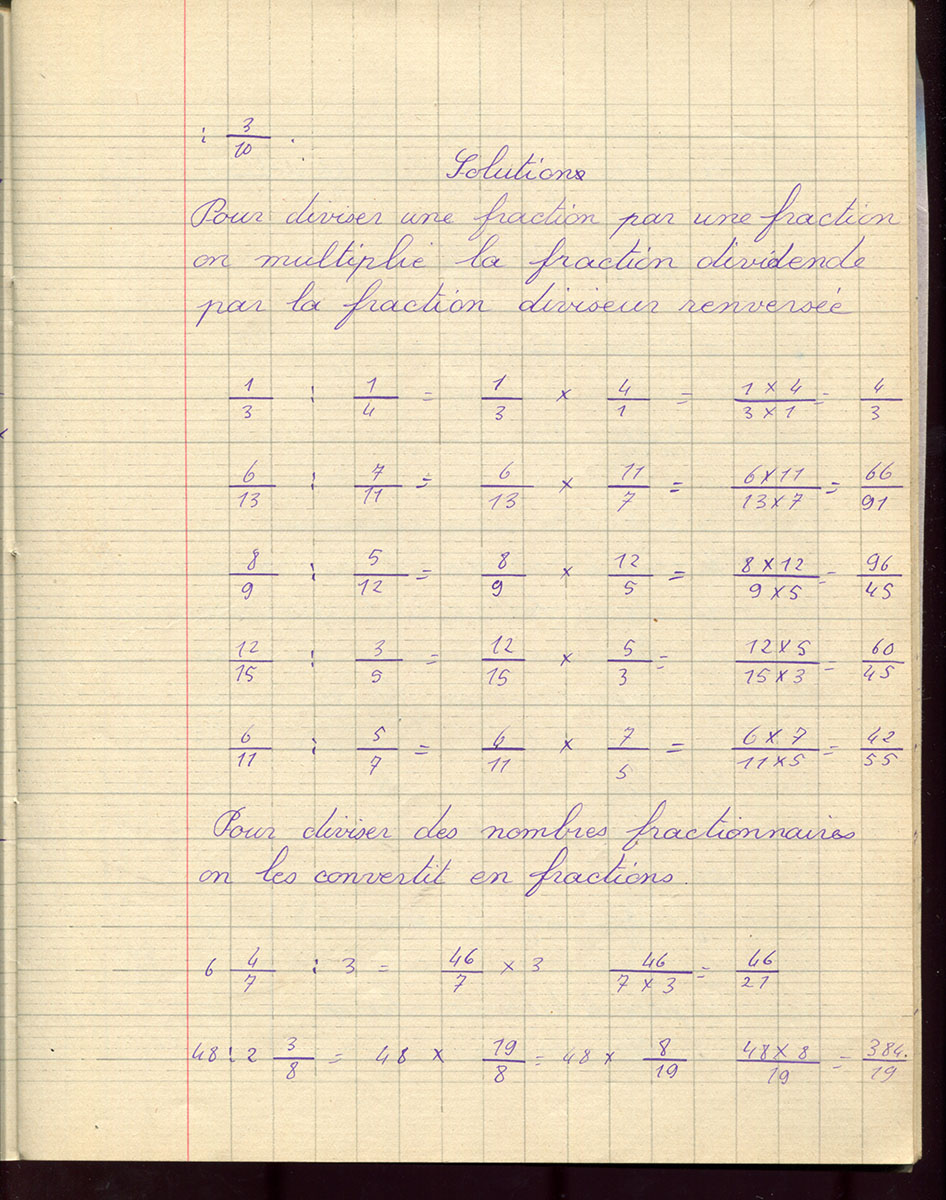 : 3/10 .
Solutions
Pour diviser une fraction par une fraction
on multiplie la fraction dividende
par la fraction diviseur renversée
1/3 : 1/4 = 1/3 × 4/1 = (1 × 4)/(3 × 1) = 4/3
6/13 : 7/11 = 6/13 × 11/7 = (6 × 11)/(13 × 7) = 66/91
8/9 : 5/12 = 8/9 × 12/5 = (8 × 12)/(9 × 5) = 96/45
12/15 : 3/5 = 12/15 × 5/3 = (12 × 5)/(15 × 3) = 60/45
6/11 : 5/7 = 6/11 × 7/5 = (6 × 7)/(11 × 5) = 42/55
Pour diviser des nombres fractionnaires
on les convertit en fractions.
6 4/7 : 3 = 46/7 × 3 46/(7 × 3) = 46/21
48 : 2 3/8 = 48 × 19/8 = 48 × 8/19 (48 × 8)/19 = 384/19.